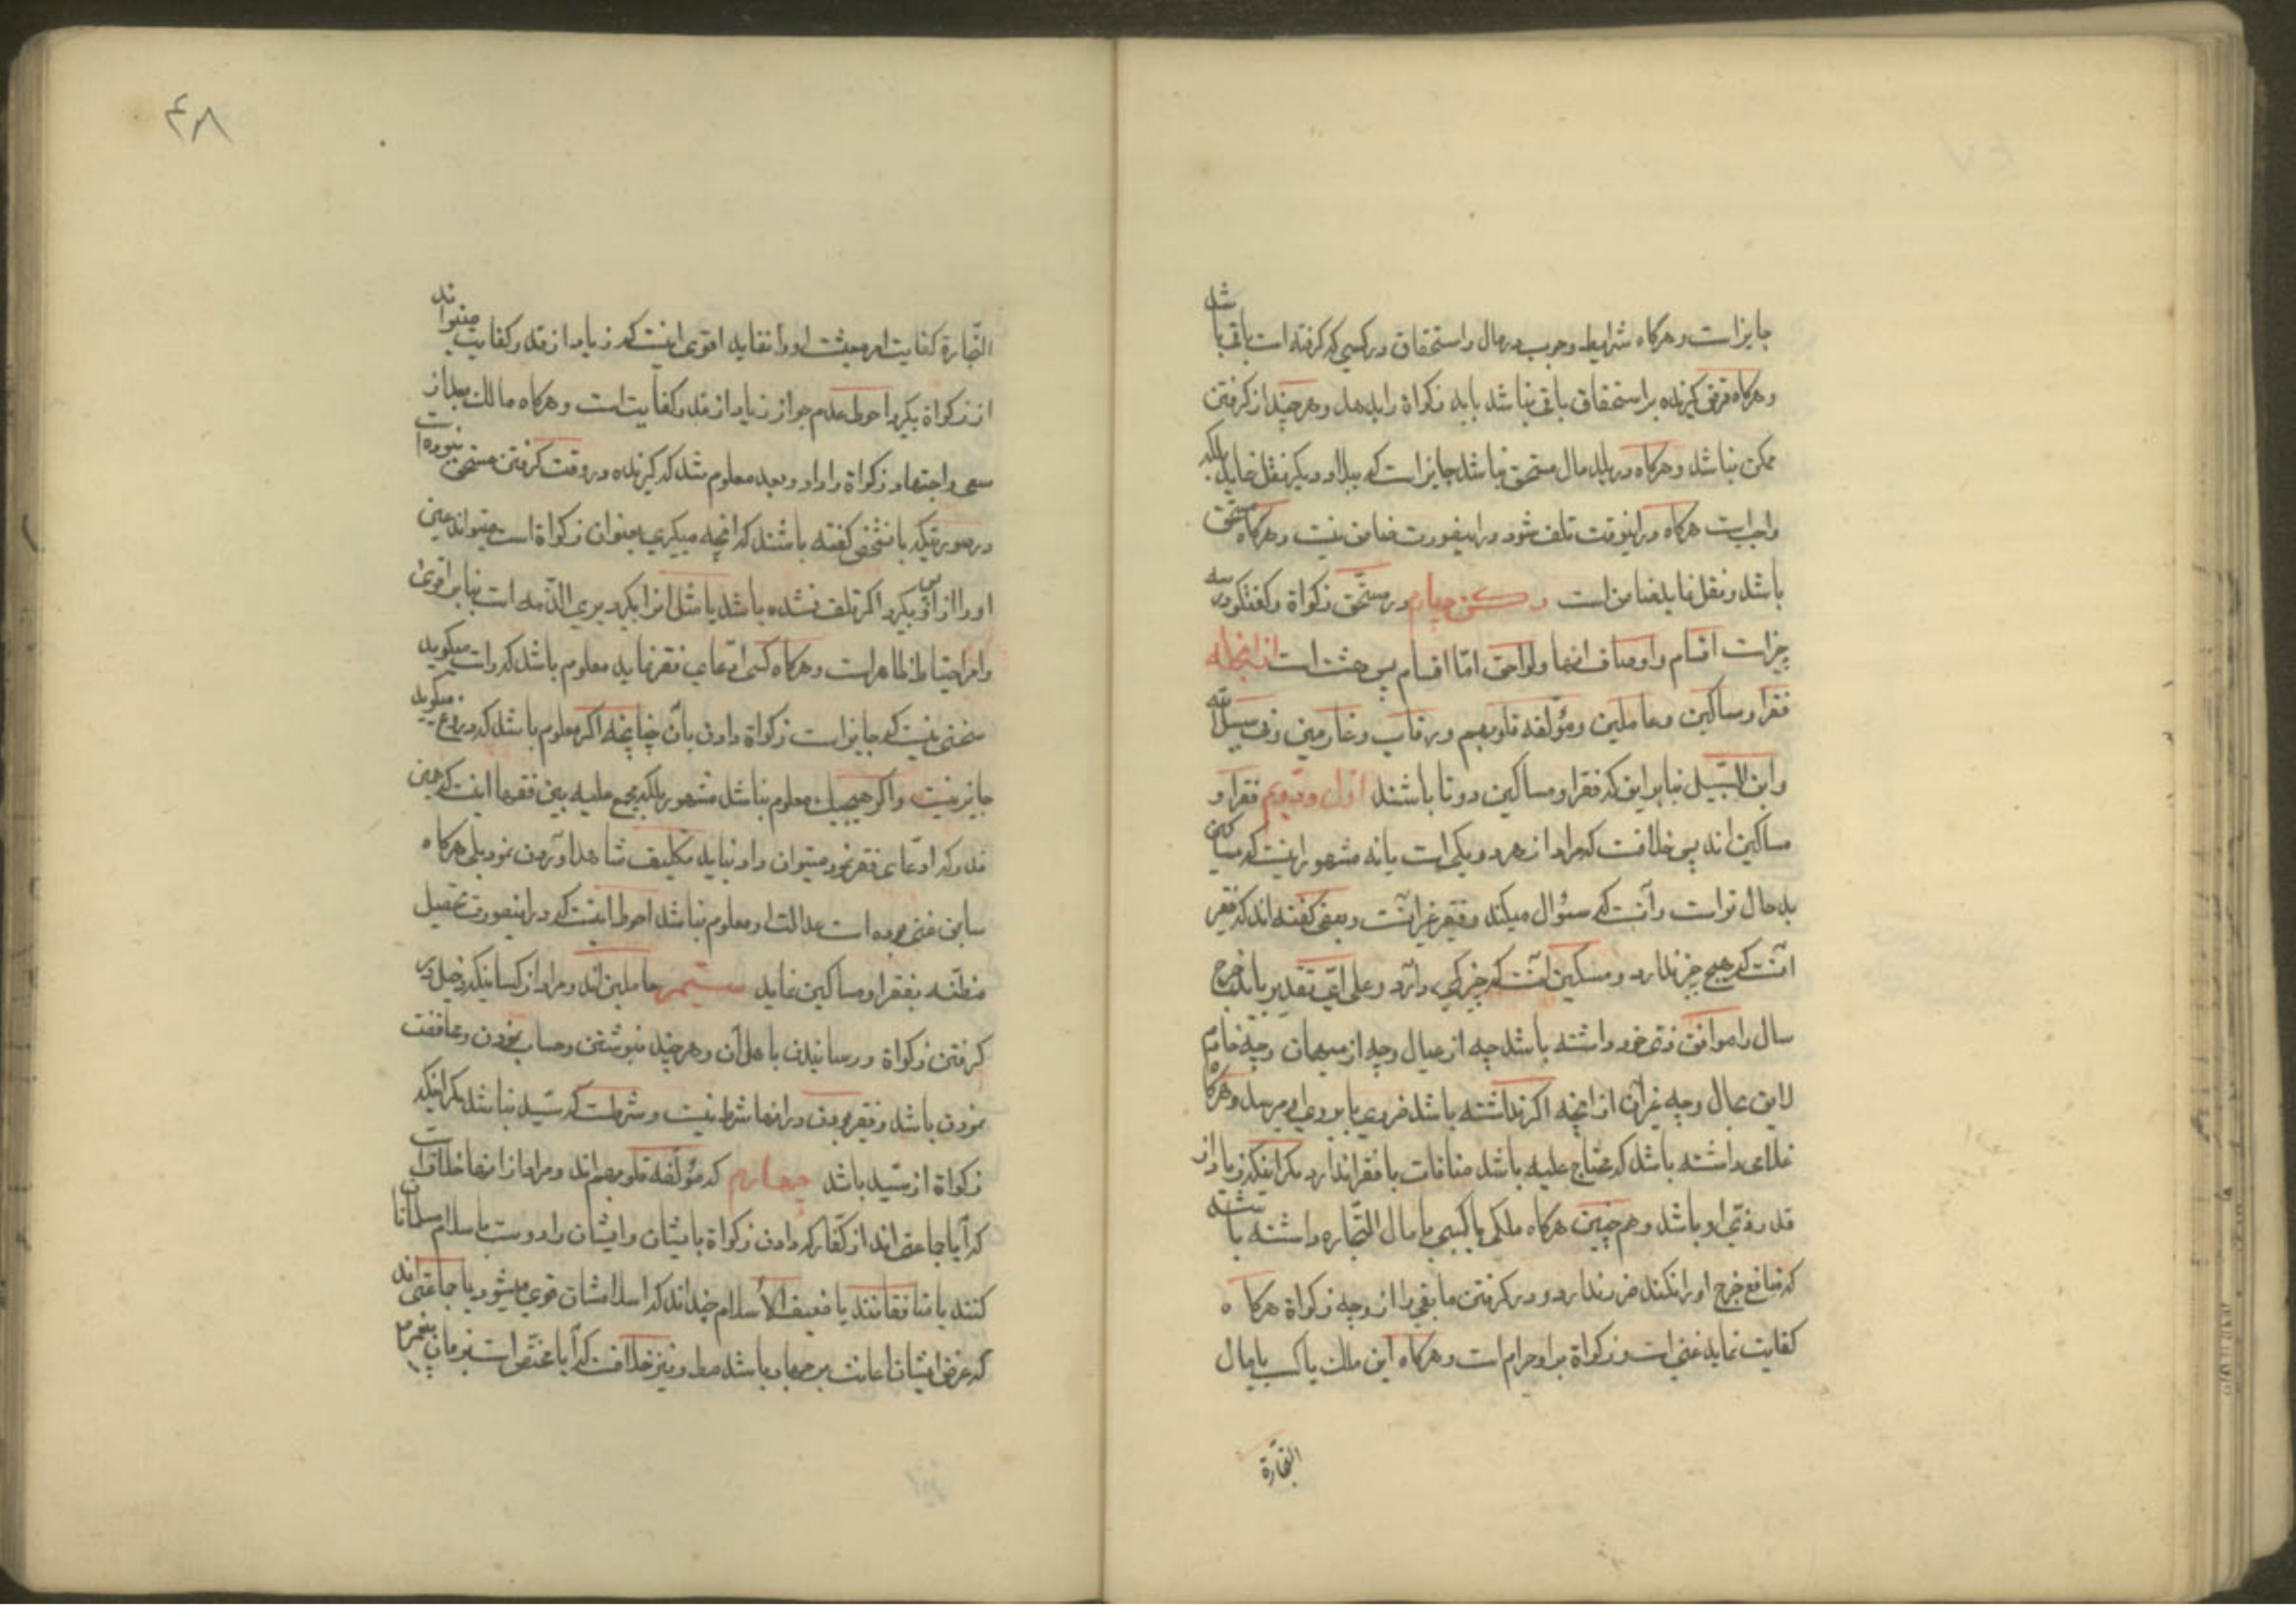 جایز است و هرکاه شرایط وجوب در مال و استحقاق در کسی که کرفته است باقی باشد
و هرکاه قرض کیرنده بر استحقاق باقی نباشد باید زکواة را بدهد و هر چند از کرفتن
ممکن نباشد و هرکاه در بلد مال مستحق نباشد جایز است که ببلاد دیکر نقل نماید بلکه
واجبست هرکاه در اینوقت تلف شود در اینصورت ضامن نیست و هرکاه مستحق
باشد و نقل نماید ضامن است رکن چهارم در مستحق زکواة و کفتکو در سه
چیز است اقسام و اوصاف انها و لواحق امّا اقسام پس هشت است از انجمله
فقرا و مساکین و عاملین و مؤلفه قلوبهم و رقاب و غارمین و فی سبیل الله
و ابن السّبیل بنا بر این که فقرا و مساکین دو تا باشند اوّل و دویم فقرا و
مساکین اند پس خلافست که مراد از هر دو یکی است یا نه مشهور اینست که مساکین
بد حال تر است و آنست که سئوال میکند و فقیر غیر انست و بعضی کفته اند که فقیر
آنست که هیچ چیز ندارد و مسکین آنست که چیز کمی دارد و علی ایّ تقدیر باید خرج
سال را موافق زیّ خود داشته باشد چه از عیال و چه از میهمان و چه خادم
لایق بحال و چه غیر آن از انچه اکر نداشته باشد ضرری یا بروی او میرسد و هرکاه
غلامی داشته باشد که محتاج علیه باشد منافات با فقر ندارد مکر اینکه زیاد از
قدر زیّ او باشد و هم چنین هرکاه ملکی یا کسبی یا مال التّجاره داشته باشد
که منافع خرج او را نکند ضرر ندارد و در کرفتن مابقی را از وجه زکواة هرکاه
کفایت نماید غنی است و زکواة بر او حرام است و هرکاه این ملک یا کسب یا مال
التّجارة
۴۸
التّجارة کفایت امر معیشت او را ننماید اقوی اینست که زیاد از قدر کفایت میتواند
از زکواة بکیرد و احوط عدم جواز زیاد از قدر کفایت است و هرکاه مالک بعد از
سعی و اجتهاد زکواة را داد و بعد معلوم شد که کیرنده در وقت کرفتن مستحق نبوده است
در صورتیکه بانشخص کفته باشند که انچه میکیری بعنوان زکواة است میتواند عین
او را از او پس بکیرد اکر تلف نشده باشد یا مثل انرا بکیرد بری الذّمه است بنا بر اقوی
و امر احتیاط ظاهر است و هرکاه کسی ادّعای فقر نماید معلوم باشد که راست میکوید
سخنی نیست که جایز است زکواة دادن بآن چنانچه اکر معلوم باشد که دروغ میکوید
جایز نیست و اکر هیچیک معلوم نباشد مشهور بلکه مجمع علیه بین فقها اینست که همین
قدر که ادّعای فقر نمود میتوان داد نباید تکلیف شاهد آوردن نمود بلی هرکاه
سابق غنی بوده است و عدالت او معلوم نباشد احوط اینست که در اینصورت تحصیل
مظنّه بفقر او مساکین نماید سیّم عاملین اند و مراد از کسانیکه دخیل در
کرفتن زکواة و رسانیدن باهل آن و هر چند بنوشتن و حساب نمودن و محافظت
نمودن باشد و فقیر بودن در انها شرط نیست و شرطست که سیّد نباشد مکر اینکه
زکواة از سیّد باشد چهارم که مؤلّفه قلوبهم اند و مراد از انها خلافست
که آیا جماعتی اند از کفّار که دادن زکواة بایشان و ایشان را دوست باسلام مسلمانان
کنند یا منافقانند یا ضعیف الاسلام چند اند که اسلامشان قوی میشود یا جماعتی اند
که غرض ایشان اعانت بر جهاد باشد و نیز خلافست که آیا مختصّ است بزمان پیغمبر